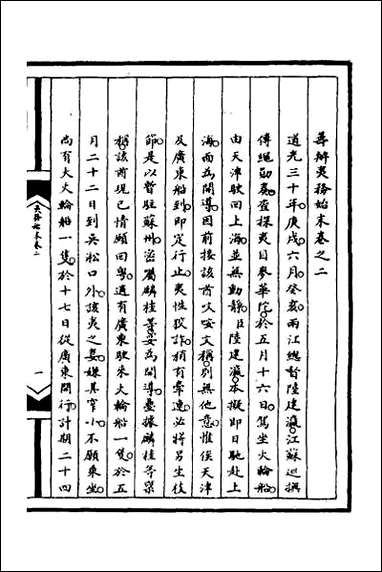 籌辦夷務始末卷之二
道光三十年。庚戌。六月。癸亥。兩江總督陸建瀛。江蘇巡撫
傅繩勛奏。查探夷目麥華陀。於五月十六日。駕坐火輪船。
由天津駛回上海。並無動靜。臣陸建瀛。本擬即日馳赴上
海。面為開導。因前接該酋咬哎文稱。別無他意。惟俟天津
及廣東船到。即定行止。夷性狡詐。稍有牽連。必將另生枝
節。是以暫駐蘇州。密屬麟桂等。妥為開導。疊據麟桂等稟
稱。該酋現已情願回粵。適有廣東駛來火輪船一隻。於五
月二十二日到吳淞口外。該夷之妻。嫌其窄小。不願乘坐。
尚有大火輪船一隻。於十七日從廣東開行。計期二十四
夷務始末卷二
一